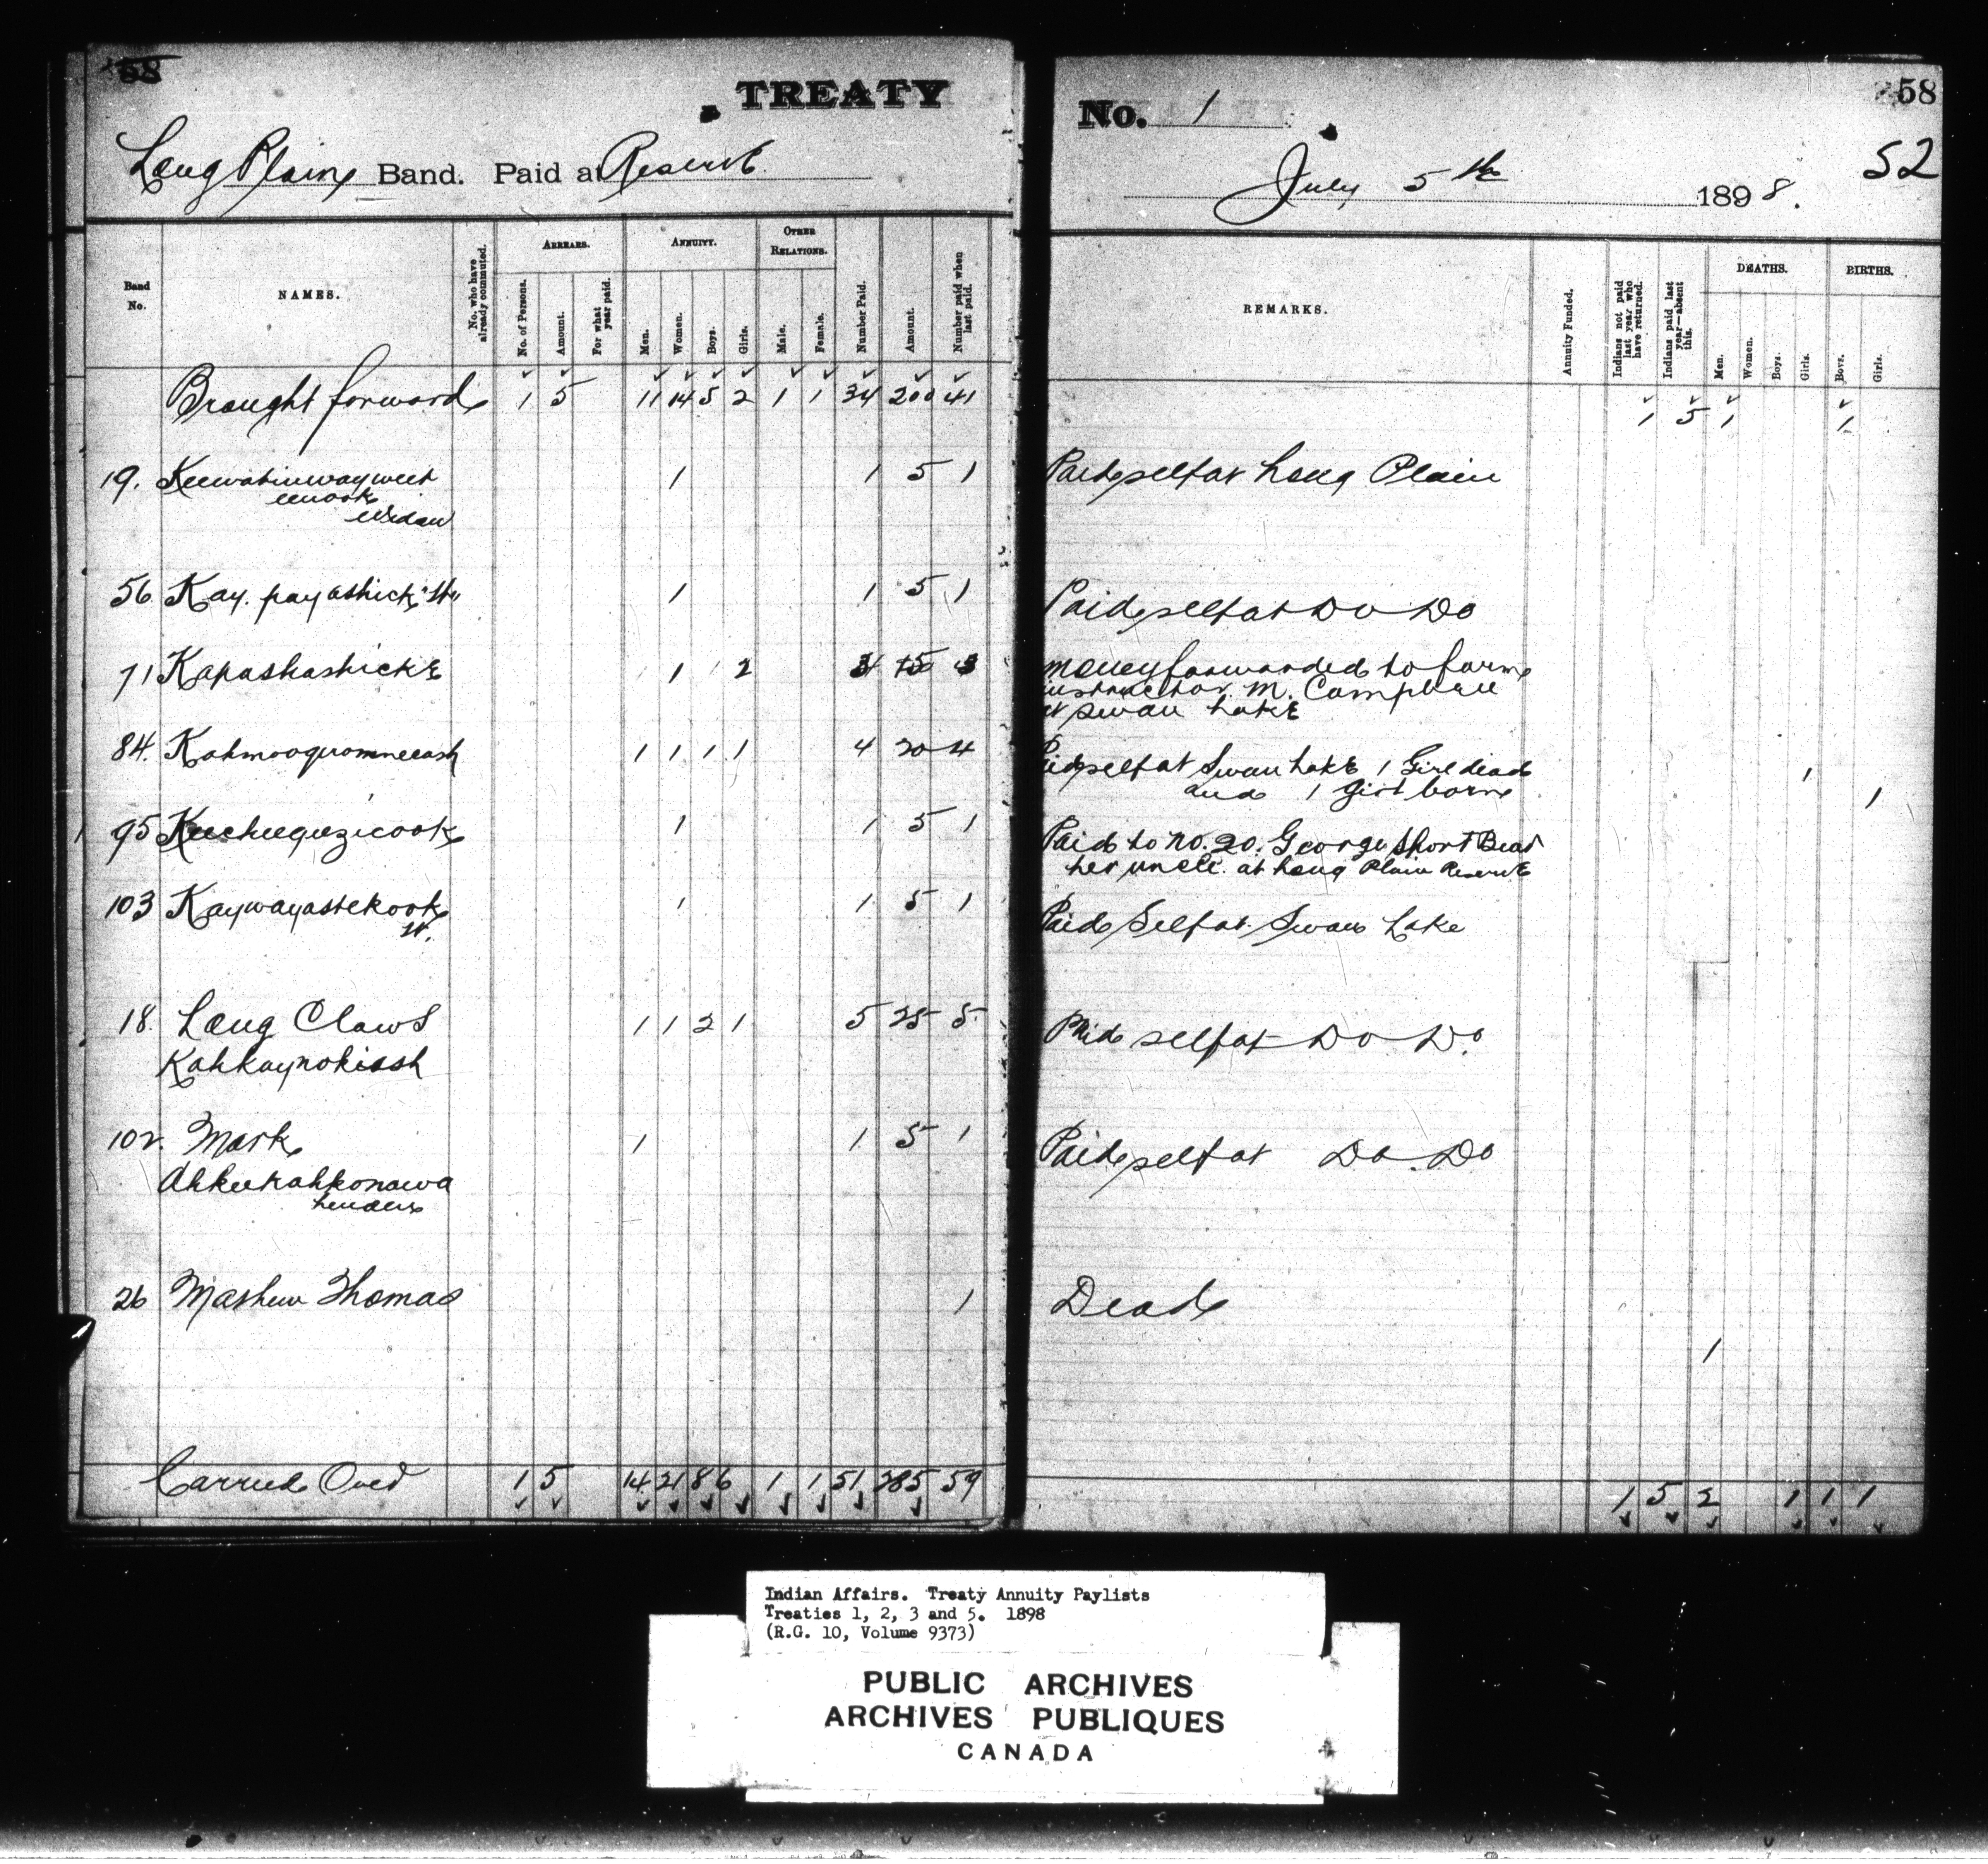 58
TREATY
No. 1
58
52
Long Plain Band. Paid at Reserve
July 5th 1898.
Band No.
NAMES.
No. who have already commuted.
ARREARS.
No. of Persons.
Amount.
For what year paid.
ANNUITY.
Men.
Women.
Boys.
Girls.
OTHER RELATIONS.
Male.
Female.
Number Paid.
Amount.
Number paid when last paid.
REMARKS.
Annuity Funded.
Indians not paid last year who have returned.
Indians paid last year—absent this.
DEATHS.
Men.
Women.
Boys.
Girls.
BIRTHS.
Boys.
Girls.
Brought forward 1 5 11 14 5 2 1 1 34 200 41 1 5 1 1
19. 1 1 5 1 Paid self at Long Plain
Widow
56 Kay. payashick "W" 1 1 5 1 Paid self at Do Do
71 Kapashashicke 1 2 3 15 3 money forwarded to farm
instructor M. Campbell
at Swan Lake
84. Kahmooquomneeash 1 1 1 1 4 20 4 Paid self at Swan Lake 1 Girl dead 1
and 1 girl born 1
95 Keecheequezicook 1 1 5 1 Paid to no. 20. George Short Bear
her uncle. at Long Plain Reserve
103 Kaywayastekook 1 1 5 1 Paid Self at Swan Lake
W.
18. Long Claws 1 1 2 1 5 25 5 Paid self at Do Do.
Kahkaynokiash
102. Mark 1 1 5 1 Paid self at Do. Do
Ahkeekahkonawa
26 Mashew Thomas 1 Dead
1
Carried Over 1 5 14 21 8 6 1 1 51 285 59 1 5 2 1 1 1
Indian Affairs. Treaty Annuity Paylists
Treaties 1, 2, 3 and 5. 1898
(R.G. 10, Volume 9373)
PUBLIC ARCHIVES
ARCHIVES PUBLIQUES
CANADA